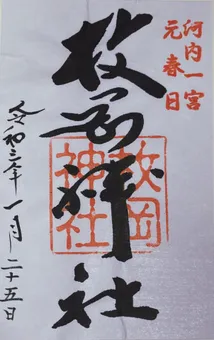 河内一宮
元春日
枚岡神社
枚岡神社
令和三年一月二十五日